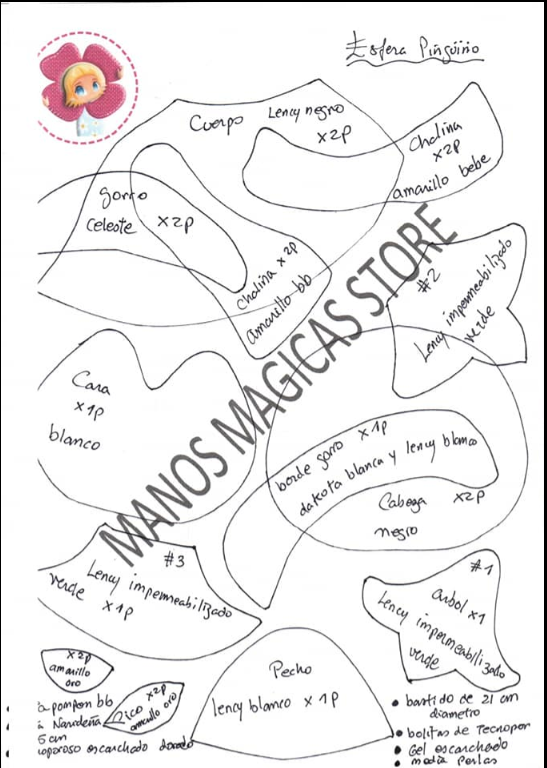 Esfera Pingüino
Cuerpo
Lency negro
x2p
Chalina
x2p
amarillo bebe
gorro
celeste
x2p
Chalina x2p
amarillo bb
#2
Lency impermeabilizado
verde
MANOS MAGICAS STORE
Cara
x1p
blanco
borde gorro x1p
dakota blanca y lency blanco
Cabeza x2p
negro
#3
Lency impermeabilizado
verde x1p
#1
arbol x1
Lency impermeabilizado
verde
x2p
amarillo
oro
Pico x2p
amarillo oro
Pecho
lency blanco x1p
a pompon bb
a Navideña
5 cm
oporoso escarchado dorado
• bastido de 21 cm
diametro
• bolitas de Tecnopor
• Gel escarchado
• media perlas